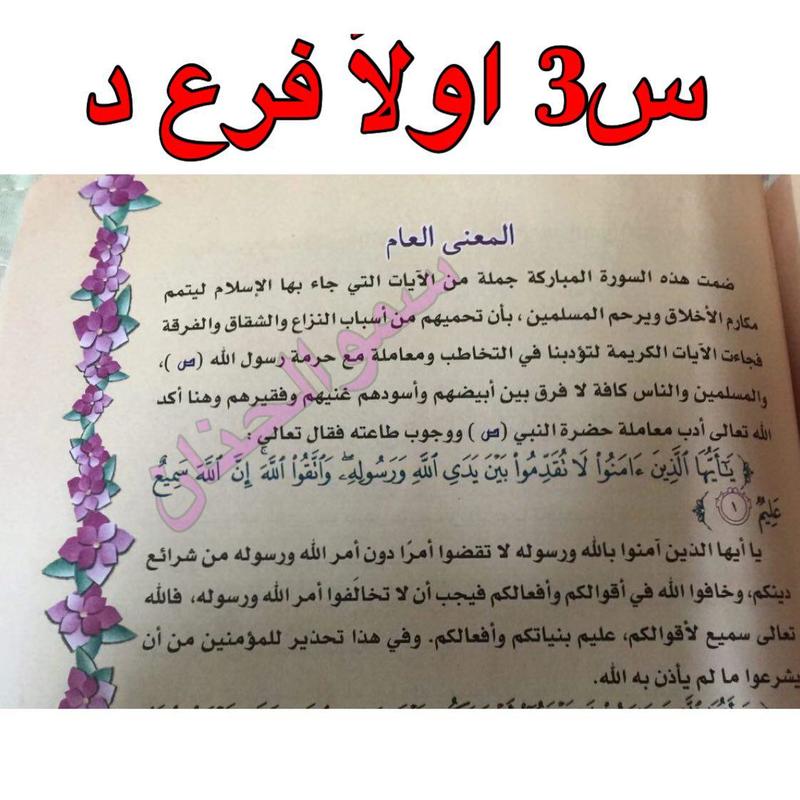 س3 اولاً فرع د
المعنى العام
ضمت هذه السورة المباركة جملة من الآيات التي جاء بها الإسلام ليتمم
مكارم الأخلاق ويرحم المسلمين ، بأن تحميهم من أسباب النزاع والشقاق والفرقة
فجاءت الآيات الكريمة لتؤدبنا في التخاطب ومعاملة مع حرمة رسول الله (ص)،
والمسلمين والناس كافة لا فرق بين أبيضهم وأسودهم غنيهم وفقيرهم وهنا أكد
الله تعالى أدب معاملة حضرة النبي (ص) ووجوب طاعته فقال تعالى :
﴿ يَٰٓأَيُّهَا ٱلَّذِينَ ءَامَنُوا۟ لَا تُقَدِّمُوا۟ بَيْنَ يَدَىِ ٱللَّهِ وَرَسُولِهِۦ ۖ وَٱتَّقُوا۟ ٱللَّهَ ۚ إِنَّ ٱللَّهَ سَمِيعٌ
عَلِيمٌ ١ ﴾
يا أيها الذين آمنوا بالله ورسوله لا تقضوا أمرًا دون أمر الله ورسوله من شرائع
دينكم، وخافوا الله في أقوالكم وأفعالكم فيجب أن لا تخالَفوا أمر الله ورسوله، فالله
تعالى سميع لأقوالكم، عليم بنياتكم وأفعالكم. وفي هذا تحذير للمؤمنين من أن
يشرعوا ما لم يأذن به الله.